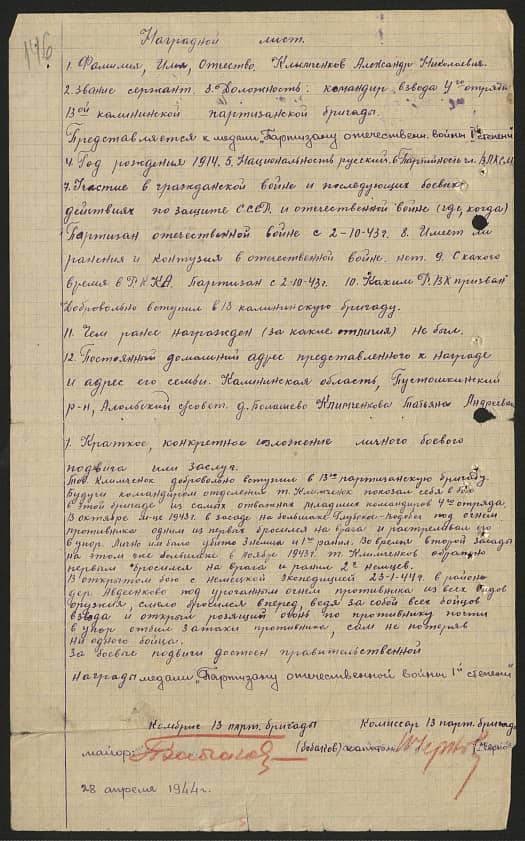 146
Наградной лист.
1. Фамилия, Имя, Отчество. Климченков Александр Николаевич.
2. Звание сержант. 3. Должность: командир взвода 4го отряда
13ой калининской партизанской бригады.
Представляется к медали „Партизану отечествен. войны I степени"
4. Год рождения 1914. 5. Национальность русский. 6 Партийность чл. ВЛКСМ
7. Участие в гражданской войне и последующих боевых
действиях по защите СССР. и отечественной войне (где, когда)
Партизан отечественной войне с 2-10-43г. 8. Имеет ли
ранения и контузия в отечественной войне. нет. 9. С какого
время в РККА. Партизан с 2-10-43г. 10. Каким РВК призван
Добровольно вступил в 13 калининскую бригаду.
11. Чем ранее награжден (за какие отличия) Не был.
12. Постоянный домашний адрес представленного к награде
и адрес его семьи. Калининская область, Пустошкинский
р-н, Алольский с/совет. д. Болашево Климченкова Татьяна Андреевна
1. Краткое, конкретное изложение личного боевого
подвига или заслуг.
Тов. Климченок добровольно вступил в 13ую партизанскую бригаду.
Будучи командиром отделения т. Климченок показал себя в бою
в этой бригаде из самых отважных младших командиров 4го отряда.
В октябре м-це 1943г. в засаде на большаке под огнем
противника одним из первых бросился на врага и расстреливал его
в упор. Лично им было убито 3 немца и 1го ранил. Во время второй засады
на этом же большаке в ноябре 1943г. т. Климченков обратно
первым бросился на врага и ранил 2х немцев.
В открытом бою с немецкой экспедицией 23-1-44г. в районе
дер. Авденково под ураганным огнем противника из всех видов
оружия, смело бросился вперед, ведя за собой всех бойцов
взвода и открыл розящий огонь по противнику почти
в упор отбил 3 атаки противника, сам не потеряв
ни одного бойца.
За боевые подвиги достоен правительственной
награды медали „Партизану отечественной войны Iй степени"
Комбриг 13 парт. бригады Комиссар 13 парт. бригады
майор: (бобаков) капитан
28 апреля 1944г.